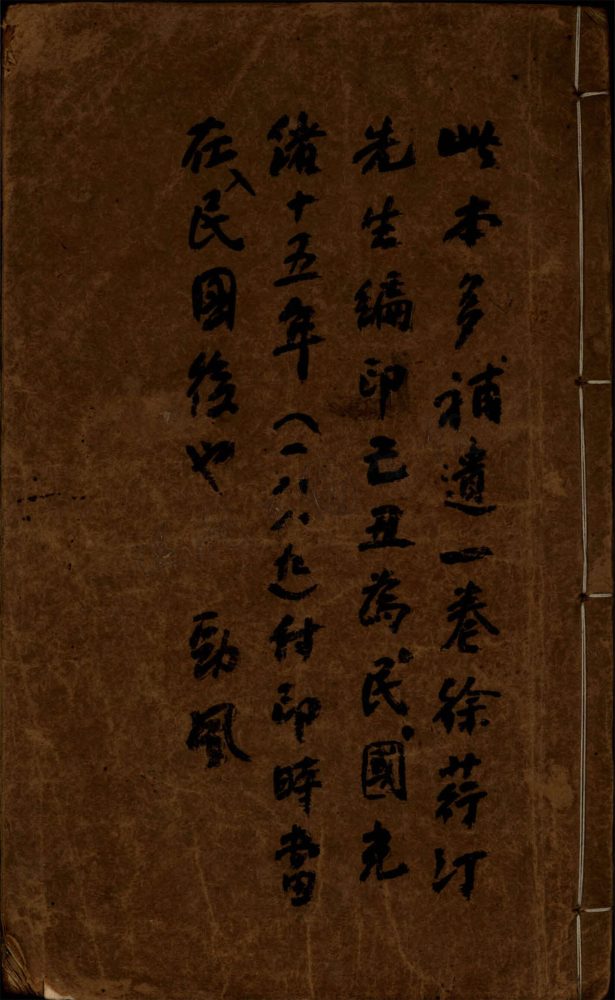 此本多補遺一卷徐荇汀
先生編印己丑為民國光
緒十五年（一八八九）付印時當
在入民國後也　勁風